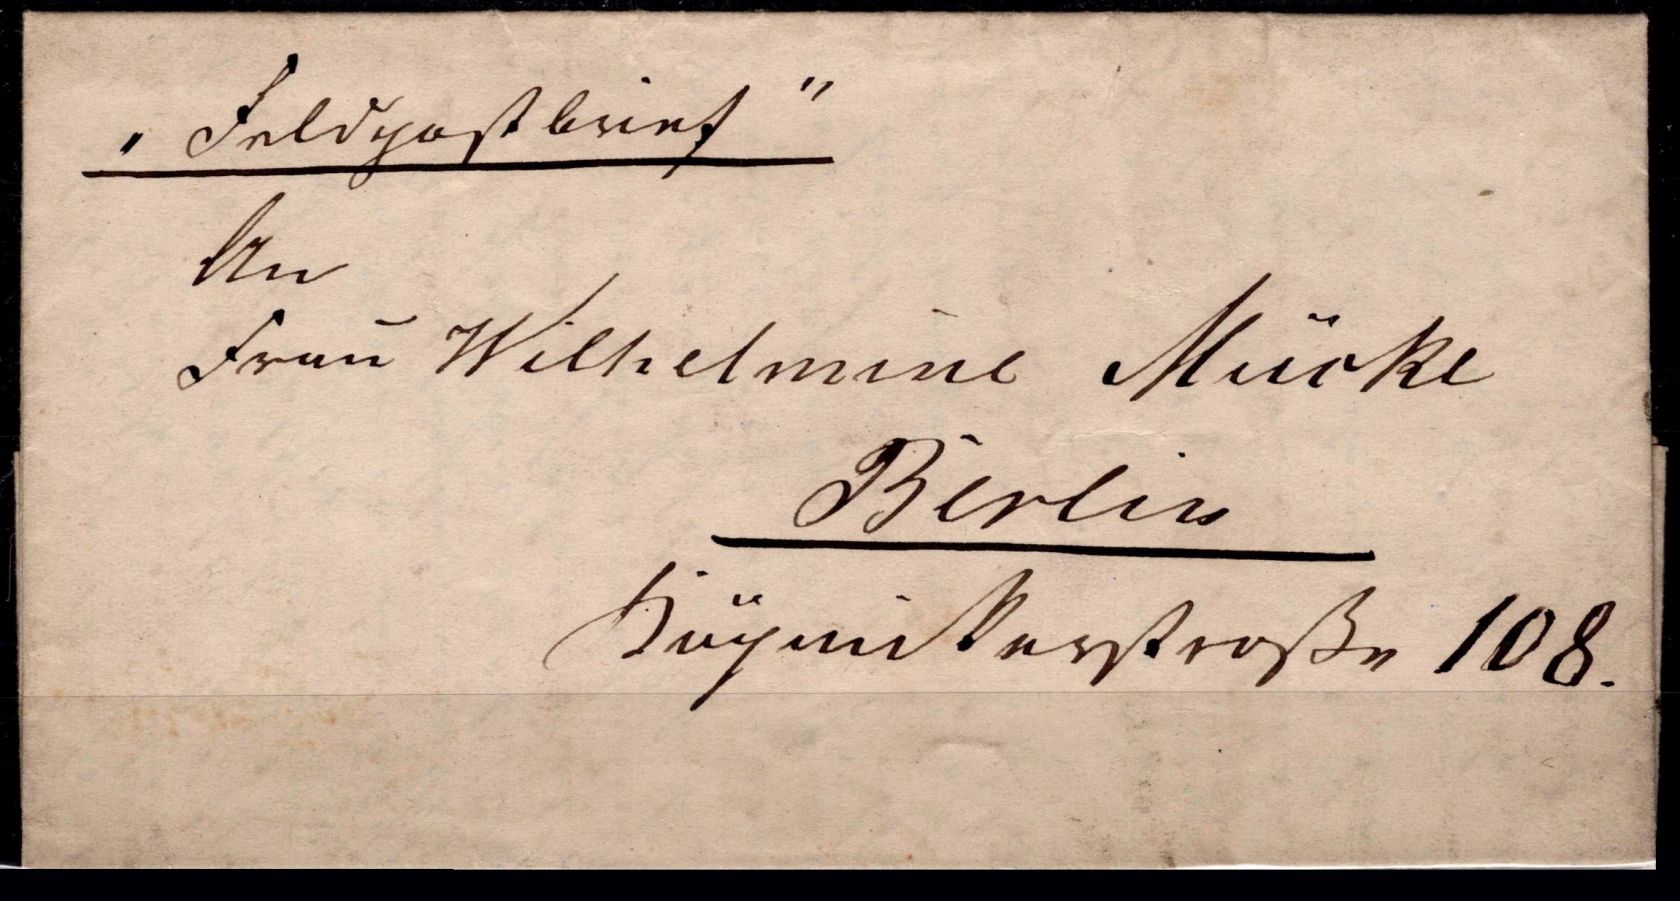 „Feldpostbrief"
An
Frau Wilhelmine Mücke
Berlin
Köpnickerstraße 108.